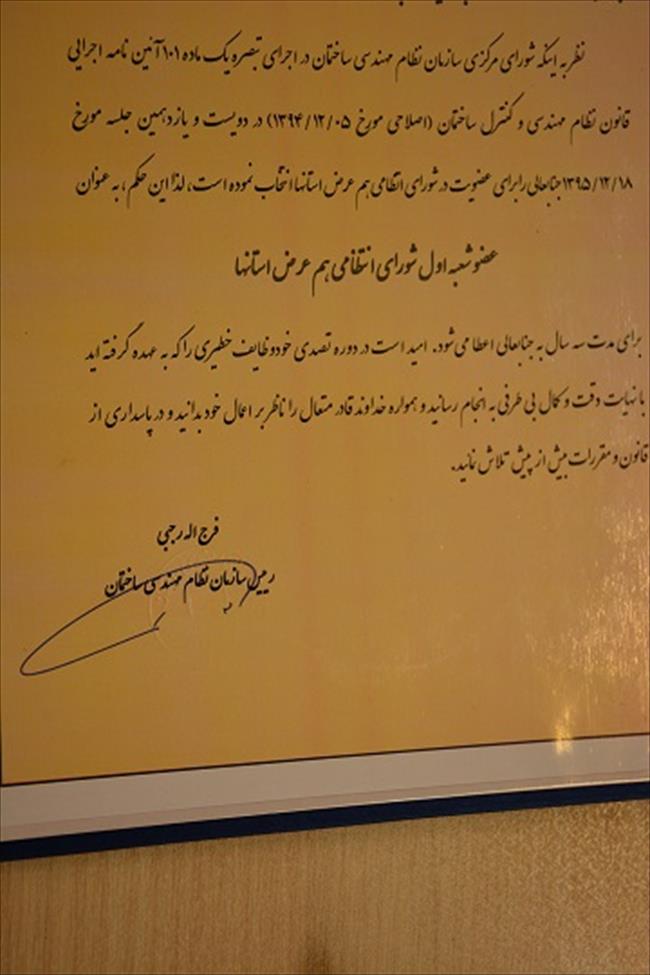 نظر به اینکه شورای مرکزی سازمان نظام مهندسی ساختمان در اجرای تبصره یک ماده ۱۰۱ آئین نامه اجرایی
قانون نظام مهندسی و کنترل ساختمان (اصلاحی مورخ ۱۳۹۴/۱۲/۰۵) در دویست و یازدهمین جلسه مورخ
۱۳۹۵/۱۲/۱۸ جنابعالی را برای عضویت در شورای انتظامی هم عرض استانها انتخاب نموده است، لذا این حکم، به عنوان
عضو شعبه اول شورای انتظامی هم عرض استانها
برای مدت سه سال به جنابعالی اعطا می شود. امید است در دوره تصدی خود وظایف خطیری را که به عهده گرفته اید
با نهایت دقت و کمال بی طرفی به انجام رسانید و همواره خداوند قادر متعال را ناظر بر اعمال خود بدانید و در پاسداری از
قانون و مقررات بیش از پیش تلاش نمائید.
فرج اله رجبی
رییس سازمان نظام مهندسی ساختمان